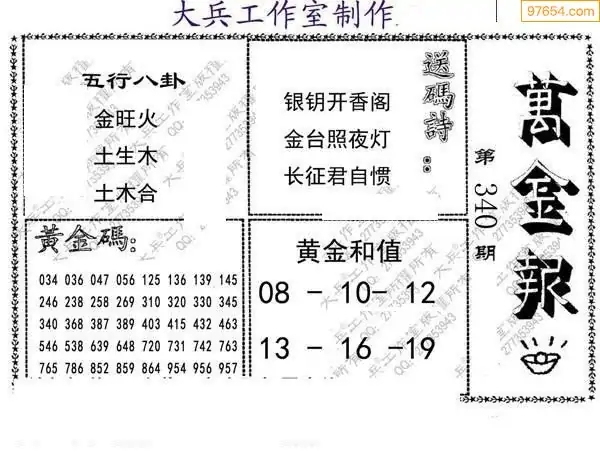 大兵工作室制作
97654.com
萬金報
第340期
五行八卦
金旺火
土生木
土木合
送碼詩:
银钥开香阁
金台照夜灯
长征君自惯
黃金碼:
034 036 047 056 125 136 139 145
246 238 258 269 310 320 330 345
340 368 387 389 403 415 432 463
546 538 639 648 720 731 742 763
765 786 852 859 864 954 956 957
黄金和值
08 - 10- 12
13 - 16 -19